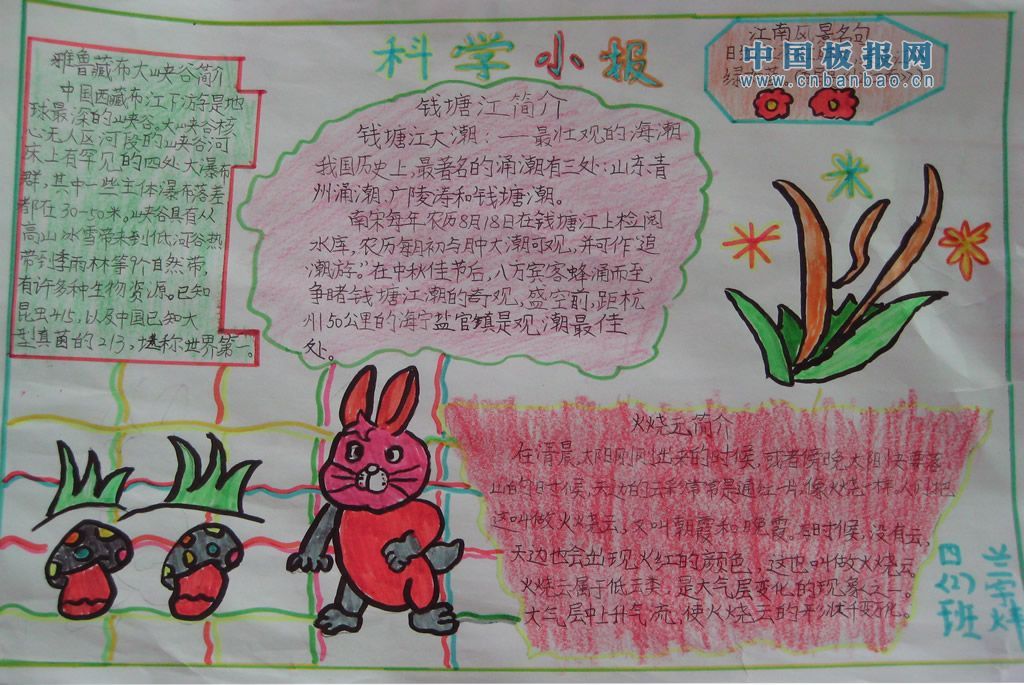 科学小报
雅鲁藏布大峡谷简介
中国西藏布江下游是地
球最深的峡谷。大峡谷核
心无人区河段的峡谷河
床上有罕见的四处大瀑布
群,其中一些主体瀑布落差
都在30-50米。峡谷具有从
高山冰雪带来到低河谷热
带到季雨林等9个自然带,
有许多种生物资源。已知
昆虫415,以及中国已知大
型真菌的213,堪称世界第一。
钱塘江简介
钱塘江大潮:——最壮观的海潮
我国历史上,最著名的涌潮有三处:山东青
州涌潮、广陵涛和钱塘潮。
南宋每年农历8月18日在钱塘江上检阅
水库,农历每月初与月中大潮可观,并可作“追
潮游。”在中秋佳节后,八万宾客蜂涌而至,
争睹钱塘江潮的奇观,盛空前,距杭
州50公里的海宁盐官镇是观潮最佳
处。
江南风景名句
中国板报网
www.cnbanbao.cn
火烧云简介
在清晨,太阳刚刚出来的时候,或者傍晚太阳快要落
山的时候,天边的云彩常常是通红一片像火烧一样,人们把
这叫做火烧云,又叫朝霞和晚霞。有时候,没有云,
天边也会出现火红的颜色,这也叫做火烧云。
火烧云属于低云类,是大气层变化的现象之一。
大气层中上升气流,使火烧云的形状千变万化。
四(2)班